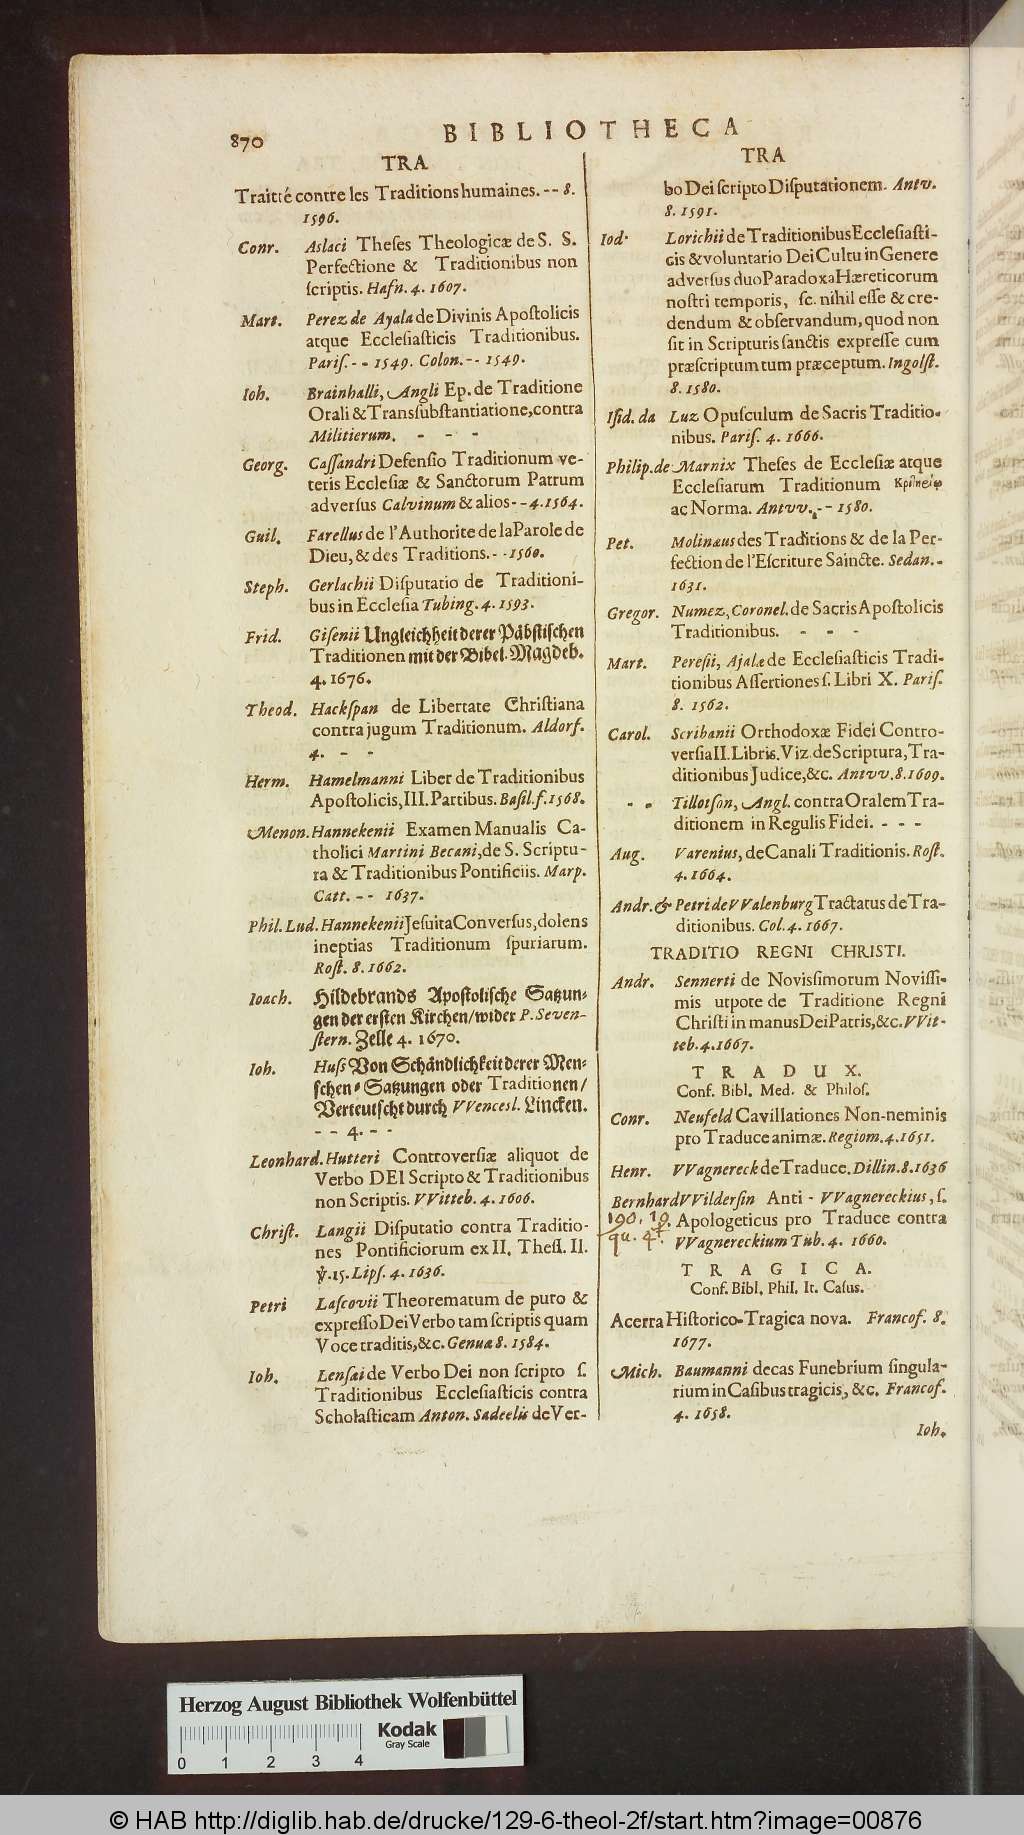 870
BIBLIOTHECA
TRA
Traitté contre les Traditions humaines. -- 8.
1596.
Conr. Aslaci Theses Theologicæ de S. S.
Perfectione & Traditionibus non
scriptis. Hafn. 4. 1607.
Mart. Perez de Ayala de Divinis Apostolicis
atque Ecclesiasticis Traditionibus.
Paris. -- 1549. Colon. -- 1549.
Ioh. Brainhalli, Angli Ep. de Traditione
Orali & Transsubstantiatione, contra
Militierum. - - -
Georg. Cassandri Defensio Traditionum ve-
teris Ecclesiæ & Sanctorum Patrum
adversus Calvinum & alios -- 4. 1564.
Guil. Farellus de l'Authorite de la Parole de
Dieu, & des Traditions. - - 1560.
Steph. Gerlachii Disputatio de Traditioni-
bus in Ecclesia Tubing. 4. 1593.
Frid. Gisenii Ungleichheit derer Päbstischen
Traditionen mit der Bibel. Magdeb.
4. 1676.
Theod. Hackspan de Libertate Christiana
contra jugum Traditionum. Aldorf.
4. - -
Herm. Hamelmanni Liber de Traditionibus
Apostolicis, III. Partibus. Basil. f. 1568.
Menon. Hannekenii Examen Manualis Ca-
tholici Martini Becani, de S. Scriptu-
ra & Traditionibus Pontificiis. Marp.
Catt. -- 1637.
Phil. Lud. Hannekenii Jesuita Conversus, dolens
ineptias Traditionum spuriarum.
Rost. 8. 1662.
Ioach. Hildebrands Apostolische Satzun-
gen der ersten Kirchen / wider P. Seven-
stern. Zelle 4. 1670.
Ioh. Huss Von Schändlichkeit derer Men-
schen-Satzungen oder Traditionen /
Verteutscht durch VVencesl. Lincken.
- - 4. - -
Leonhard. Hutteri Controversiæ aliquot de
Verbo DEI Scripto & Traditionibus
non Scriptis. VVitteb. 4. 1606.
Christ. Langii Disputatio contra Traditio-
nes Pontificiorum ex II. Thess. II.
℣. 15. Lips. 4. 1636.
Petri Lascovii Theorematum de puro &
expresso Dei Verbo tam scriptis quam
Voce traditis, &c. Genuæ 8. 1584.
Ioh. Lensai de Verbo Dei non scripto s.
Traditionibus Ecclesiasticis contra
Scholasticam Anton. Sadeelis de Ver-
TRA
bo Dei scripto Disputationem. Antv.
8. 1591.
Iod. Lorichii de Traditionibus Ecclesiasti-
cis & voluntario Dei Cultu in Genere
adversus duo Paradoxa Hæreticorum
nostri temporis, sc. nihil esse & cre-
dendum & observandum, quod non
sit in Scripturis sanctis expresse cum
præscriptum tum præceptum. Ingolst.
8. 1580.
Isid. da Luz Opusculum de Sacris Traditio-
nibus. Paris. 4. 1666.
Philip. de Marnix Theses de Ecclesiæ atque
Ecclesiarum Traditionum
ac Norma. Antvv. -- 1580.
Pet. Molinæus des Traditions & de la Per-
fection de l'Escriture Saincte. Sedan. -
1631.
Gregor. Numez, Coronel. de Sacris Apostolicis
Traditionibus. - - -
Mart. Peresii, Ajalæ de Ecclesiasticis Tradi-
tionibus Assertiones s. Libri X. Paris.
8. 1562.
Carol. Scribanii Orthodoxæ Fidei Contro-
versia II. Libris. Viz. de Scriptura, Tra-
ditionibus Judice, &c. Antvv. 8. 1609.
- - Tillotson, Angl. contra Oralem Tra-
ditionem in Regulis Fidei. - - -
Aug. Varenius, de Canali Traditionis. Rost.
4. 1664.
Andr. & Petri de VValenburg Tractatus de Tra-
ditionibus. Col. 4. 1667.
TRADITIO REGNI CHRISTI.
Andr. Sennerti de Novissimorum Novissi-
mis utpote de Traditione Regni
Christi in manus Dei Patris, &c. VVit-
teb. 4. 1667.
TRADUX.
Conf. Bibl. Med. & Philos.
Conr. Neufeld Cavillationes Non-neminis
pro Traduce animæ. Regiom. 4. 1651.
Henr. VVagnereck de Traduce. Dillin. 8. 1636
Bernhard VVildersin Anti-VVagnereckius, s.
190. 10. Apologeticus pro Traduce contra
qu. 4º. VVagnereckium Tub. 4. 1660.
TRAGICA.
Conf. Bibl. Phil. It. Casus.
Acerra Historico-Tragica nova. Francof. 8.
1677.
Mich. Baumanni decas Funebrium singula-
rium in Casibus tragicis, &c. Francof.
4. 1658.
Ioh.
Herzog August Bibliothek Wolfenbüttel
Kodak
Gray Scale
0 1 2 3 4
© HAB http://diglib.hab.de/drucke/129-6-theol-2f/start.htm?image=00876